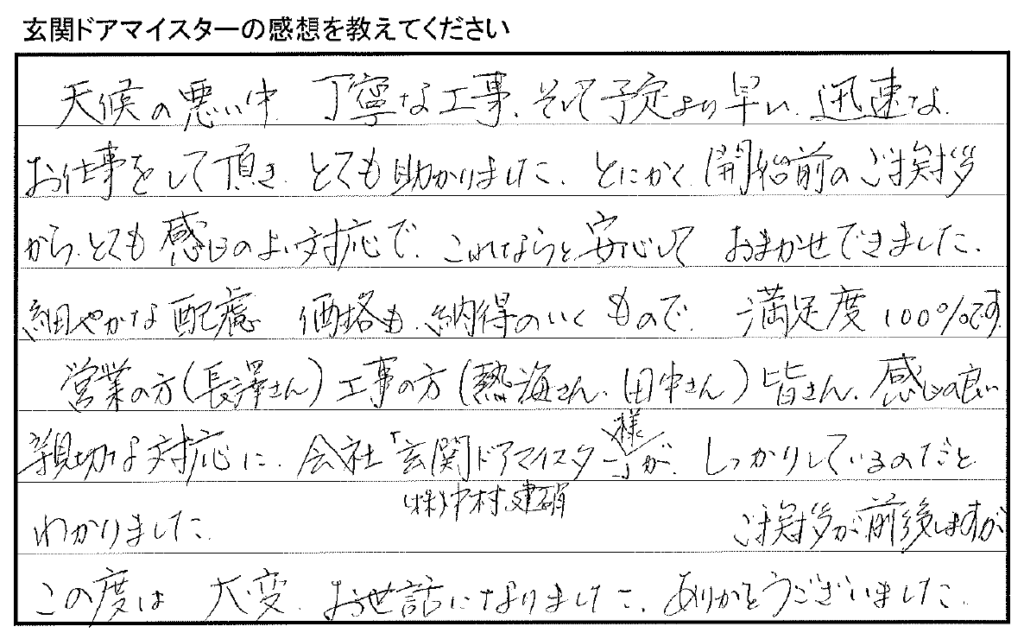 玄関ドアマイスターの感想を教えてください
天候の悪い中 丁寧な工事、そして予定より早い、迅速な
お仕事をして頂き、とても助かりました、とにかく、開始前のご挨拶
から、とても感じのよい対応で、これならと、安心して おまかせできました、
細やかな配慮 価格も、納得のいくもので、満足度100%です
営業の方(長澤さん)工事の方(熱海さん、田中さん)皆さん、感じの良い
親切な対応に、会社「玄関ドアマイスター様」が、しっかりしているのだと
(株)中村建硝
わかりました ご挨拶が前後しますが
この度は 大変、お世話になりました、ありがとうございました、